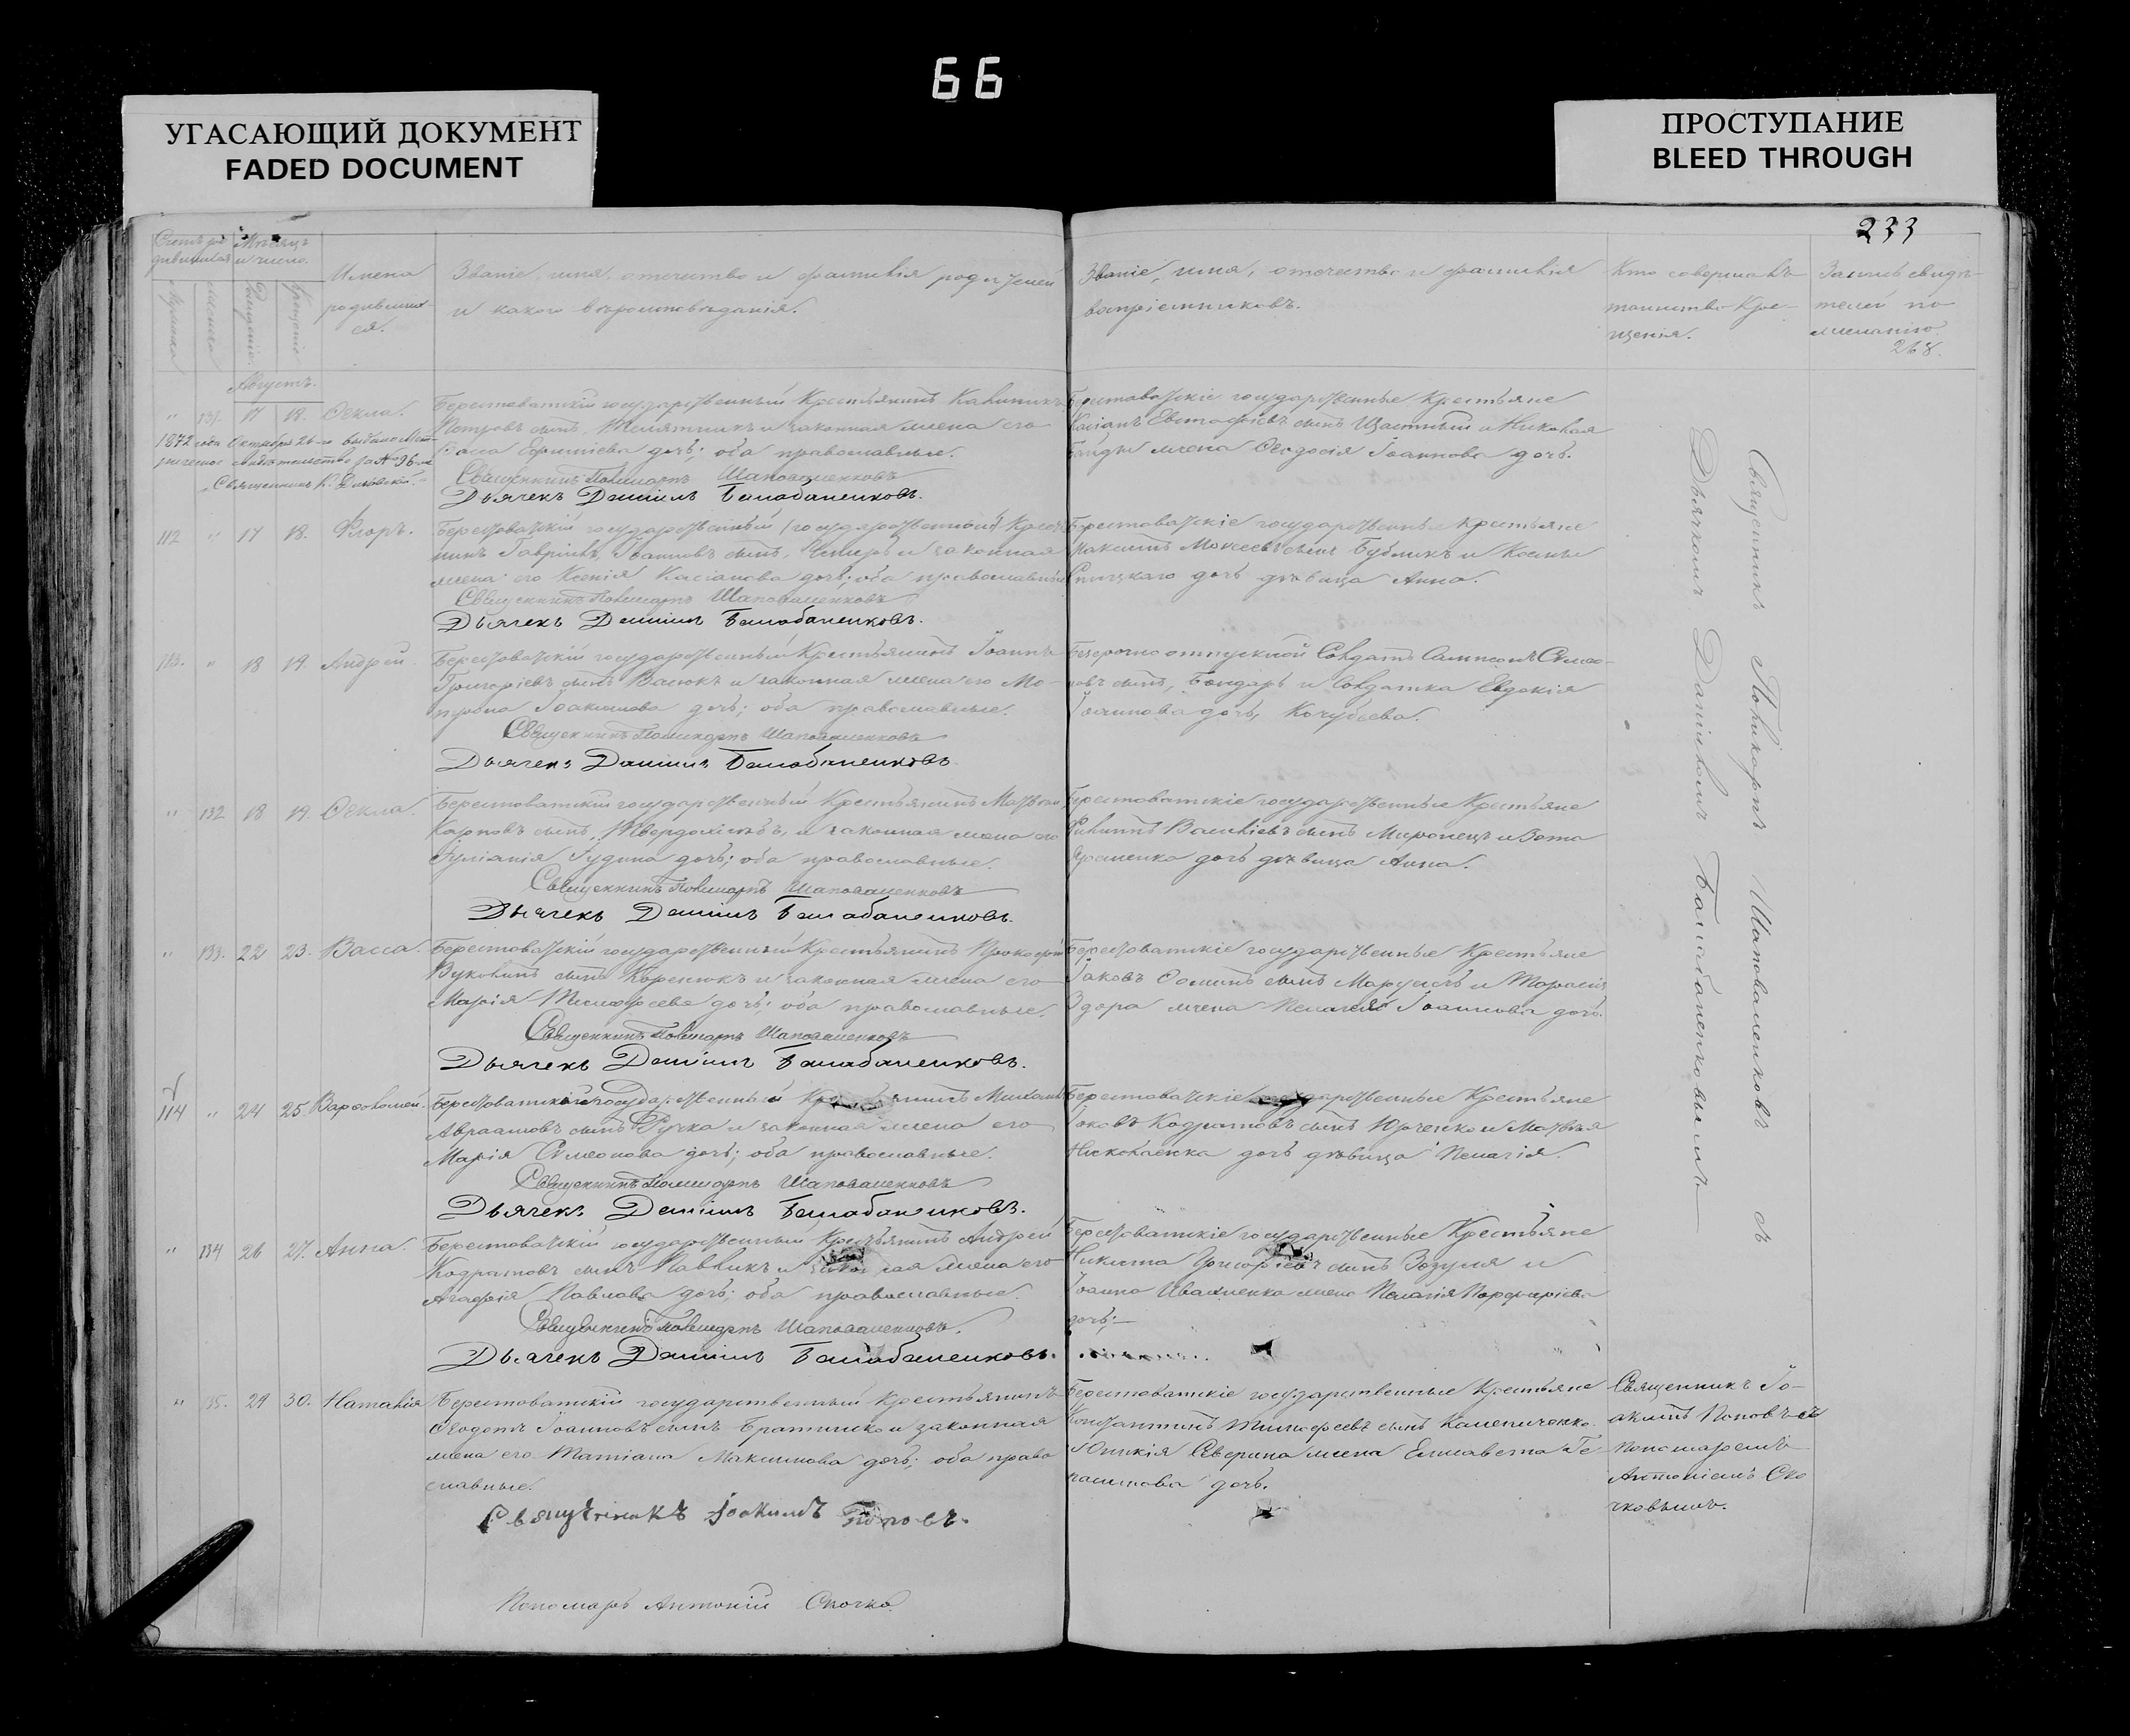 66
УГАСАЮЩИЙ ДОКУМЕНТ
FADED DOCUMENT
ПРОСТУПАНИЕ
BLEED THROUGH
233
Счетъ ро
дившихся
Мѣсяцъ
и число.
Мужеска
Женска
Рожденія.
Крещенія
Имена
родивших
ся.
Званіе, имя, отчество и фамилія родителей
и какого вѣроисповѣданія.
Званіе, имя, отчество и фамилія
воспріемниковъ.
Кто совершалъ
таинство Кре-
щенія.
Запись свидѣ-
телей по
желанію.
268.
Августъ.
" 131. 17 18. Ѳекла.
Берестоватскій государственный Крестьянинъ Калинникъ
Петровъ сынъ, и законная жена его
Васса Ефимиева дочь; оба православные.
Священникъ Поликарпъ Шаповаленковъ
Дьячекъ Даніилъ Балабаненковъ.
1872 года Октября 26-го выдано Мет-
рическое свидѣтельство за № 96-мъ
Священникъ К.
Берестоватскіе государственные Крестьяне
Касіанъ Евстафіевъ сынъ Щастный и Николая
жена Ѳеодосія Іоаннова дочь.
112 " 17 18. Флоръ.
Берестоватскій государственный (государственной) Крестья
нинъ Гавріилъ Іоанновъ сынъ, и законная
жена его Ксенія Касіанова дочь; оба православные
Священникъ Поликарпъ Шаповаленковъ
Дьячекъ Даніилъ Балабаненковъ.
Берестоватскіе государственные Крестьяне
Максимъ Моисеевъ сынъ Бубликъ и Косьмы
дочь дѣвица Анна.
113. " 18 19. Андрей.
Берестоватскій государственный Крестьянинъ Іоаннъ
Григоріевъ сынъ Васюкъ и законная жена его Мо-
трона Іоакимова дочь; оба православные.
Священникъ Поликарпъ Шаповаленковъ
Дьячекъ Даніилъ Балабаненковъ.
Безсрочно отпускной Солдатъ Сампсонъ Симео-
новъ сынъ, Бондарь и Солдатка Евдокія
дочь, Кочубеева.
" 132 18 19. Ѳекла.
Берестоватскій государственный Крестьянинъ Матвей
Карповъ сынъ, Твердохлѣбъ, и законная жена его
Іуліанія Іудина дочь; оба православные.
Священникъ Поликарпъ Шаповаленковъ
Дьячекъ Даніилъ Балабаненковъ.
Берестоватскіе государственные Крестьяне
Филиппъ Василіевъ сынъ Миронецъ и Зота
Яременка дочь дѣвица Анна.
" 133. 22 23. Васса.
Берестоватскій государственный Крестьянинъ Прокофій
сынъ Коренюкъ и законная жена его
Марія Тимофеева дочь; оба православные.
Священникъ Поликарпъ Шаповаленковъ
Дьячекъ Даніилъ Балабаненковъ.
Берестоватскіе государственные Крестьяне
Іаковъ Ѳоминъ сынъ и Тарасія
Здора жена Пелагея Іоаннова дочь.
114 " 24 25. Варфоломей.
Берестоватскій государственный Крестьянинъ Михаилъ
Авраамовъ сынъ Ручка и законная жена его
Марія Симеонова дочь; оба православные.
Священникъ Поликарпъ Шаповаленковъ
Дьячекъ Даніилъ Балабаненковъ.
Берестоватскіе государственные Крестьяне
Іаковъ Кодратовъ сынъ Юрченко и Матвѣя
Николаенка дочь дѣвица Пелагія.
" 134 26 27. Анна.
Берестоватскій государственный Крестьянинъ Андрей
Кодратовъ сынъ Павликъ и законная жена его
Агафія Павлова дочь; оба православные.
Священникъ Поликарпъ Шаповаленковъ.
Дьячекъ Даніилъ Балабаненковъ.
Берестоватскіе государственные Крестьяне
Никита Григоріевъ сынъ Зозуля и
Іоанна Иващенка жена Пелагія Порфиріева
дочь;—
Священникъ Поликарпъ Шаповаленковъ съ
Дьячкомъ Даніиломъ Балабаненковымъ
" 135. 29 30. Наталія
Берестоватскій государственный Крестьянинъ
Ѳеодотъ Іоанновъ сынъ и законная
жена его Татіана Максимова дочь; оба право
славные.
Священникъ Іоакимъ Поповъ.
Пономарь Антоній Скочко.
Берестоватскіе государственные Крестьяне
Константинъ Тимофеевъ сынъ
Северина жена Елисавета Ге-
расимова дочь.
Священникъ Іо-
акимъ Поповъ съ
пономаремъ
Антоніемъ Ско
чковымъ.